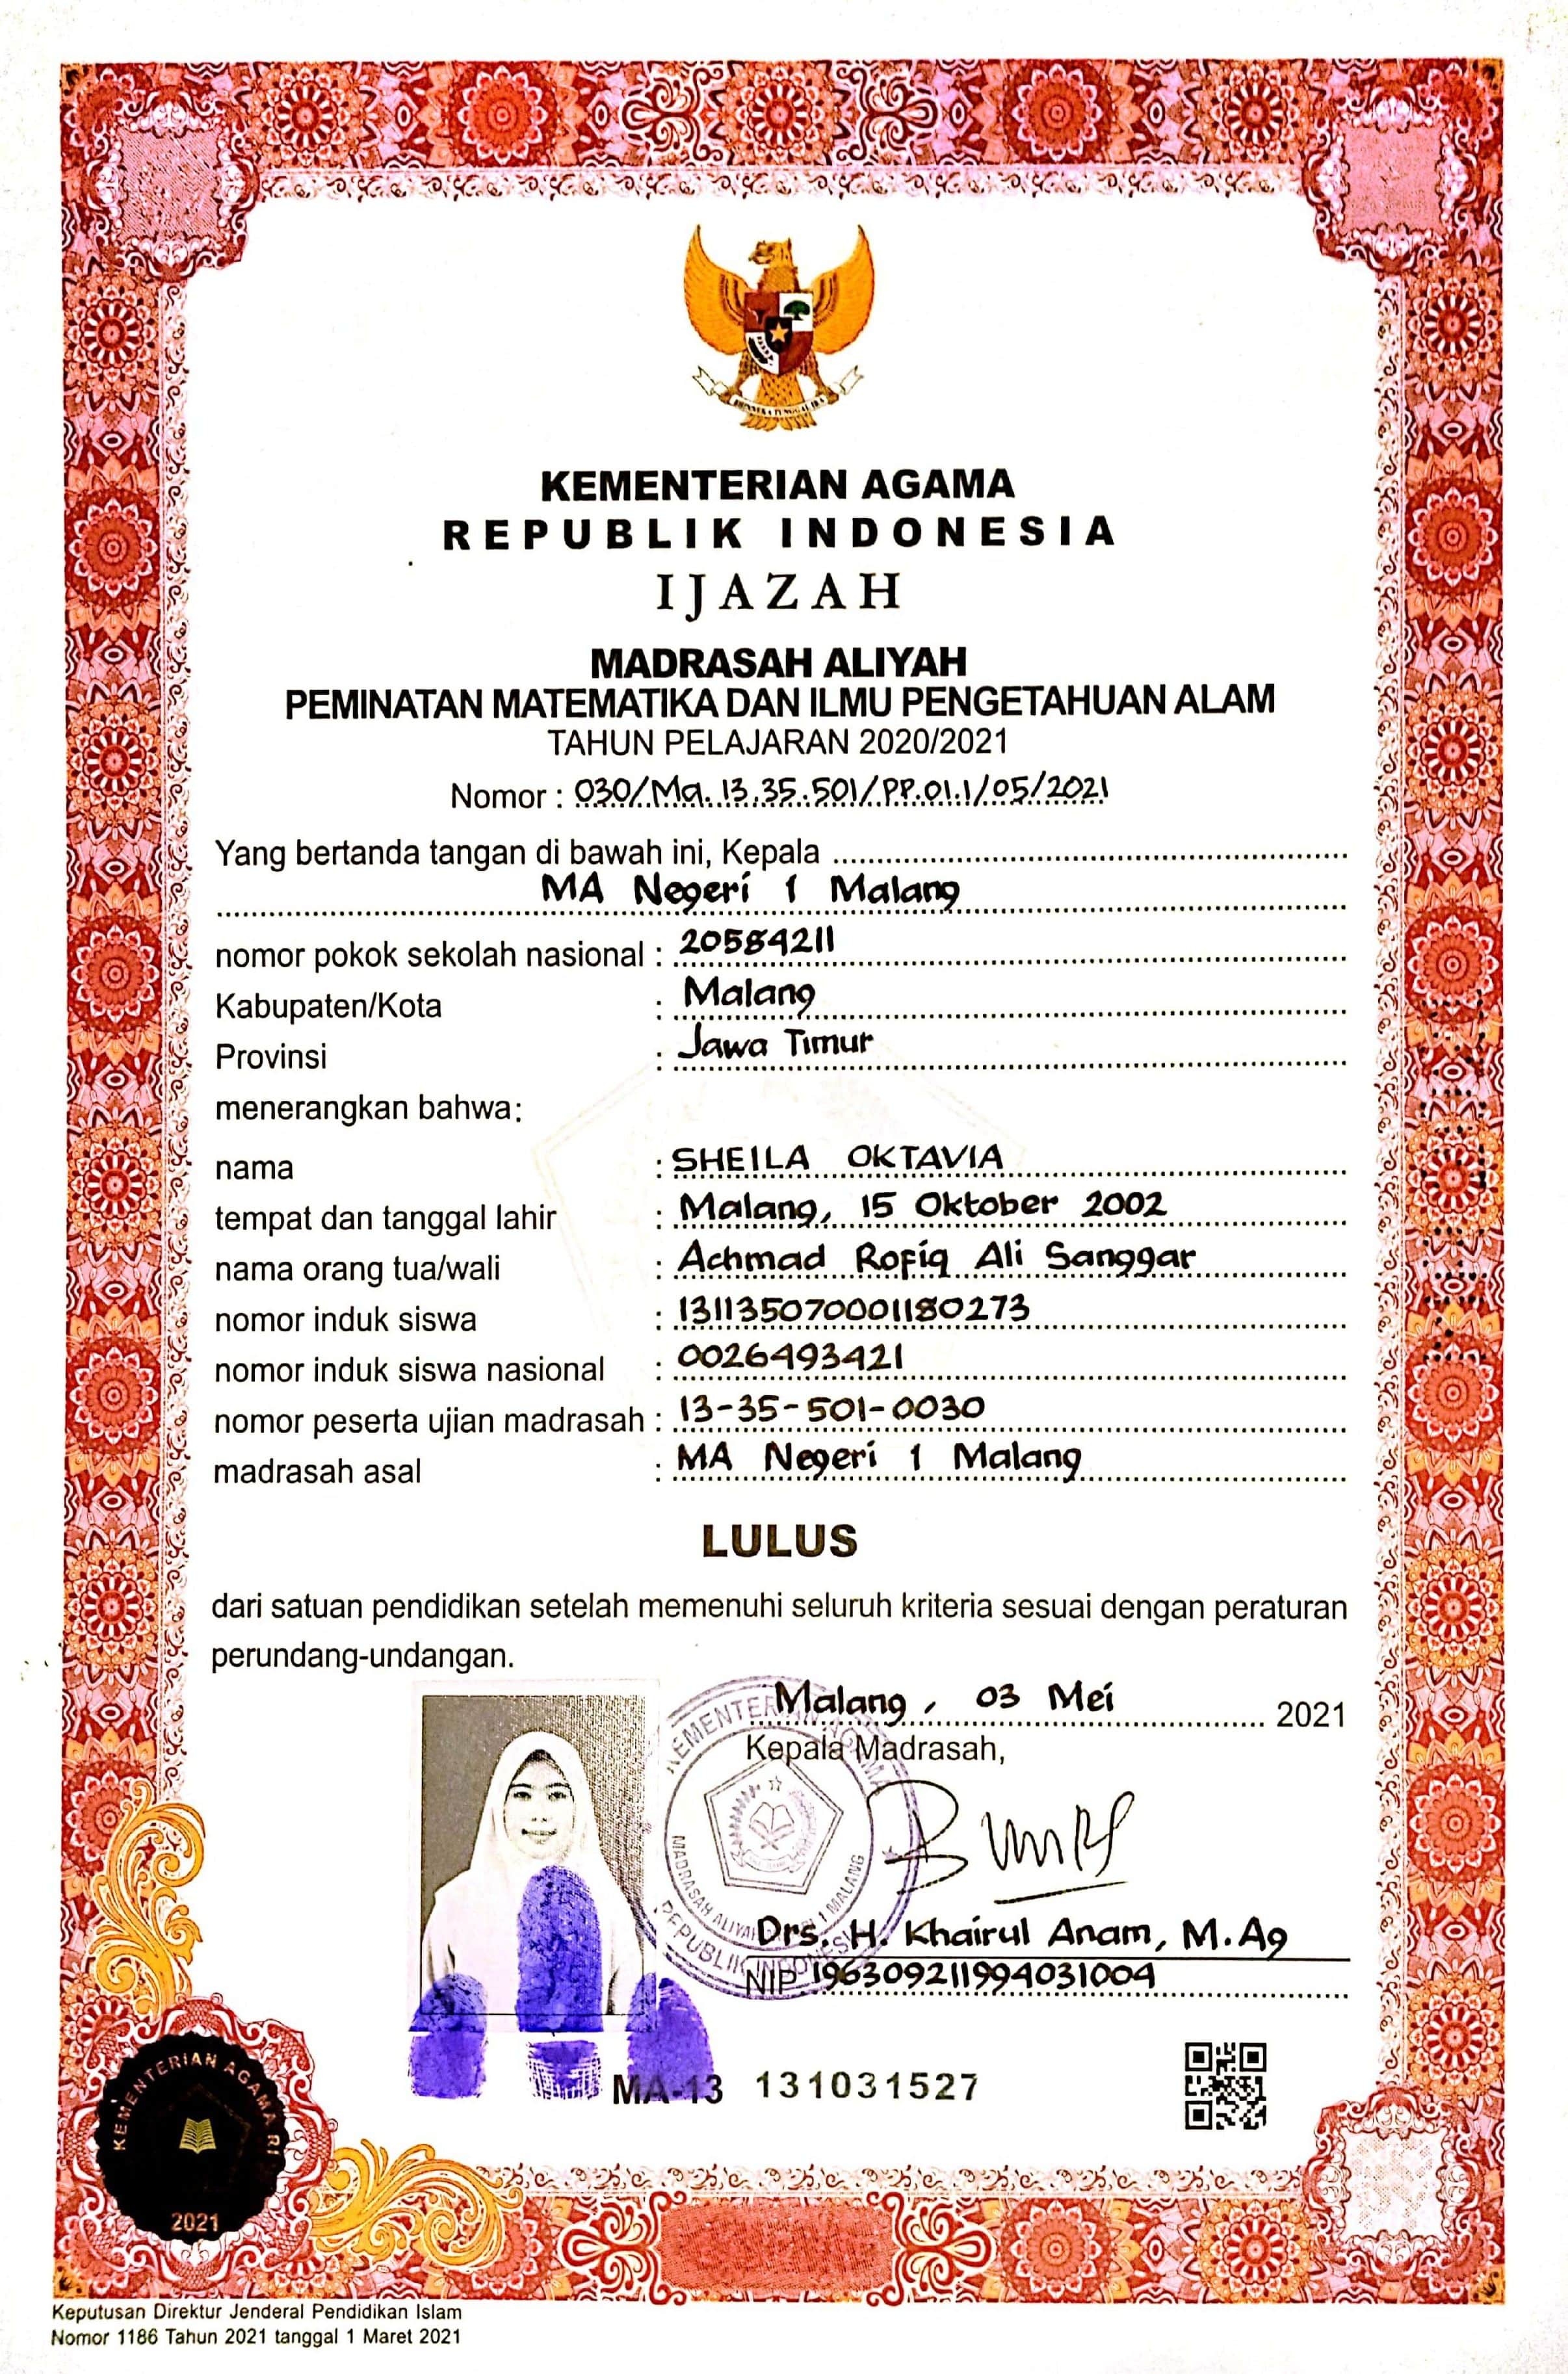 KEMENTERIAN AGAMA
REPUBLIK INDONESIA
IJAZAH
MADRASAH ALIYAH
PEMINATAN MATEMATIKA DAN ILMU PENGETAHUAN ALAM
TAHUN PELAJARAN 2020/2021
Nomor : 030/Ma.13.35.501/PP.01.1/05/2021
Yang bertanda tangan di bawah ini, Kepala
MA Negeri 1 Malang
nomor pokok sekolah nasional : 20584211
Kabupaten/Kota : Malang
Provinsi : Jawa Timur
menerangkan bahwa:
nama : SHEILA OKTAVIA
tempat dan tanggal lahir : Malang, 15 Oktober 2002
nama orang tua/wali : Achmad Rofiq Ali Sanggar
nomor induk siswa : 131135070001180273
nomor induk siswa nasional : 0026493421
nomor peserta ujian madrasah : 13-35-501-0030
madrasah asal : MA Negeri 1 Malang
LULUS
dari satuan pendidikan setelah memenuhi seluruh kriteria sesuai dengan peraturan
perundang-undangan.
Malang, 03 Mei 2021
Kepala Madrasah,
KEMENTERIAN AGAMA
MADRASAH ALIYAH 1 MALANG
REPUBLIK INDONESIA
Drs. H. Khairul Anam, M.Ag
NIP 196309211994031004
MA-13 131031527
KEMENTERIAN AGAMA RI
2021
Keputusan Direktur Jenderal Pendidikan Islam
Nomor 1186 Tahun 2021 tanggal 1 Maret 2021